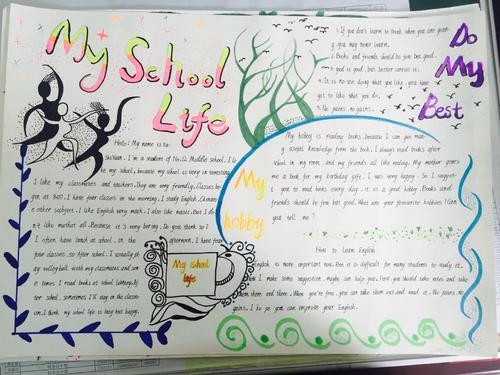 My School
Life
Hello! My name is Xu
ShiYuan. I'm a student of No.12 Middle school. I li
ke my school, because my school is very is interesting
I like my classmates and teachers. They are very friendly. Classes be
gin at 8:00. I have four classes in the morning. I study English. Chinese
other subject. I like English very much. I also like music. But I do
n't like math at all. Because it's very boring. Do you think so?
I often have lunch at school. in the afternoon. I have four
four classes, so After school. I usually pl
ay volleyball with my classmates and som
e times I read books at school library. Af
ter school, sometimes I'll stay in the classro-
om. I think my school life is busy but happy.
My school
life
1. If you don't learn to think when you are youn-
g, you may never learn.
2. Books and friends should be few but good.
3. good is good, but better carries it.
4. It is no use doing what you like; you have
got to like what you do.
5. No pains, no gains.
Do
My
Best
My
hobby
My hobby is reading books, because I can get man-
y useful knowledge from the book. I always read books after
school in my room, and my friends all like reading. My mother gives
me a book for my birthday gift. I was very happy. So I sugges-
t you to read books every day, it is a good hobby. Books and
friends should be few but good. What are your favourite hobbies? Can
you tell me?
How to Learn English
English is more important now. But it is difficult for many students to study it.
I make some suggestion, maybe can help you. First, you should take notes and take
them here and there. When you're free, you can take them out and read it. No pains, no
gains. I ho pe you can improve your English.